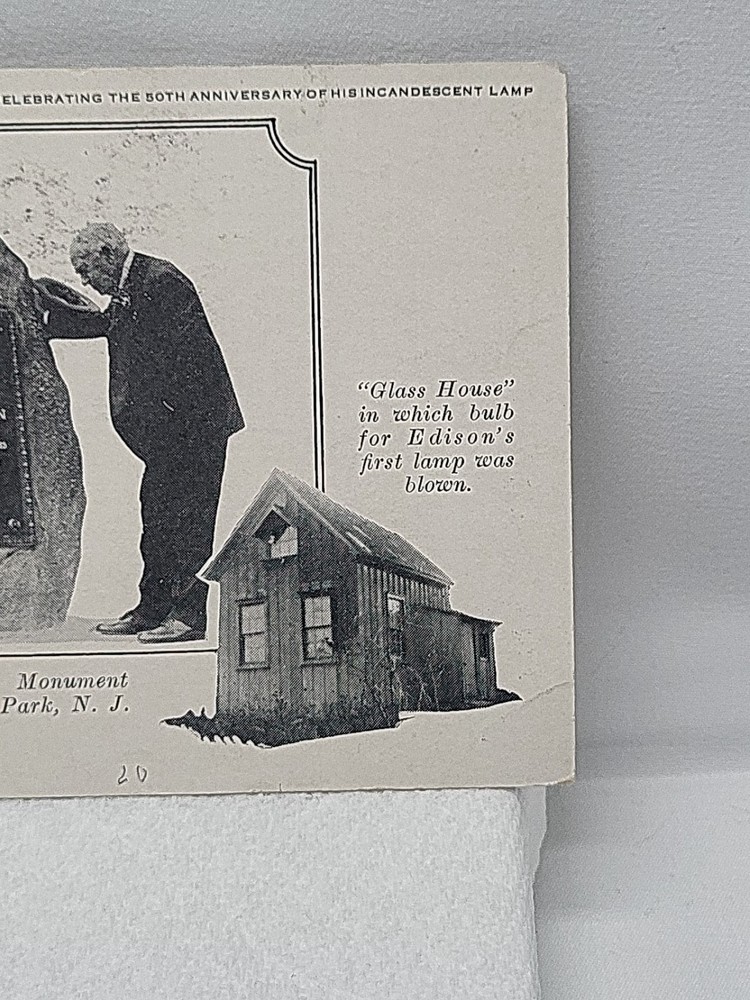 ELEBRATING THE 50TH ANNIVERSARY OF HIS INCANDESCENT LAMP
N
"Glass House"
in which bulb
for Edison's
first lamp was
blown.
Monument
Park, N. J.
20